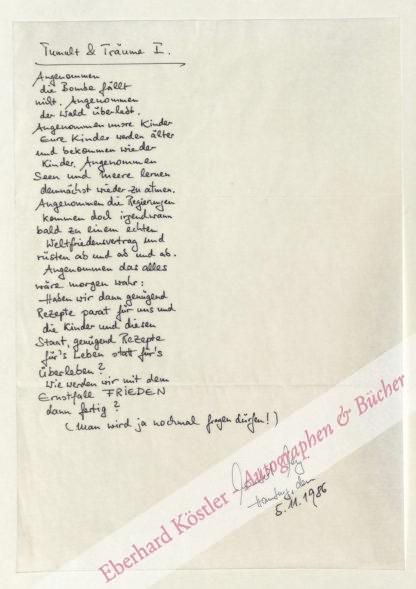 Tumult & Träume I.
Angenommen
die Bombe fällt
nicht. Angenommen
der Wald überlebt.
Angenommen unsre Kinder
Eure Kinder werden älter
und bekommen wieder
Kinder. Angenommen
Seen und Meere lernen
demnächst wieder zu atmen.
Angenommen die Regierungen
kommen doch irgendwann
bald zu einem echten
Weltfriedensvertrag und
rüsten ab und ab und ab.
Angenommen das alles
wäre morgen wahr:
Haben wir dann genügend
Rezepte parat für uns und
die Kinder und diesen
Staat, genügend Rezepte
für's Leben statt für's
Überleben?
Wie werden wir mit dem
Ernstfall FRIEDEN
dann fertig?
(Man wird ja nochmal fragen dürfen!)
Hamburg, den
5.11.1986
Eberhard Köstler - Autographen & Bücher